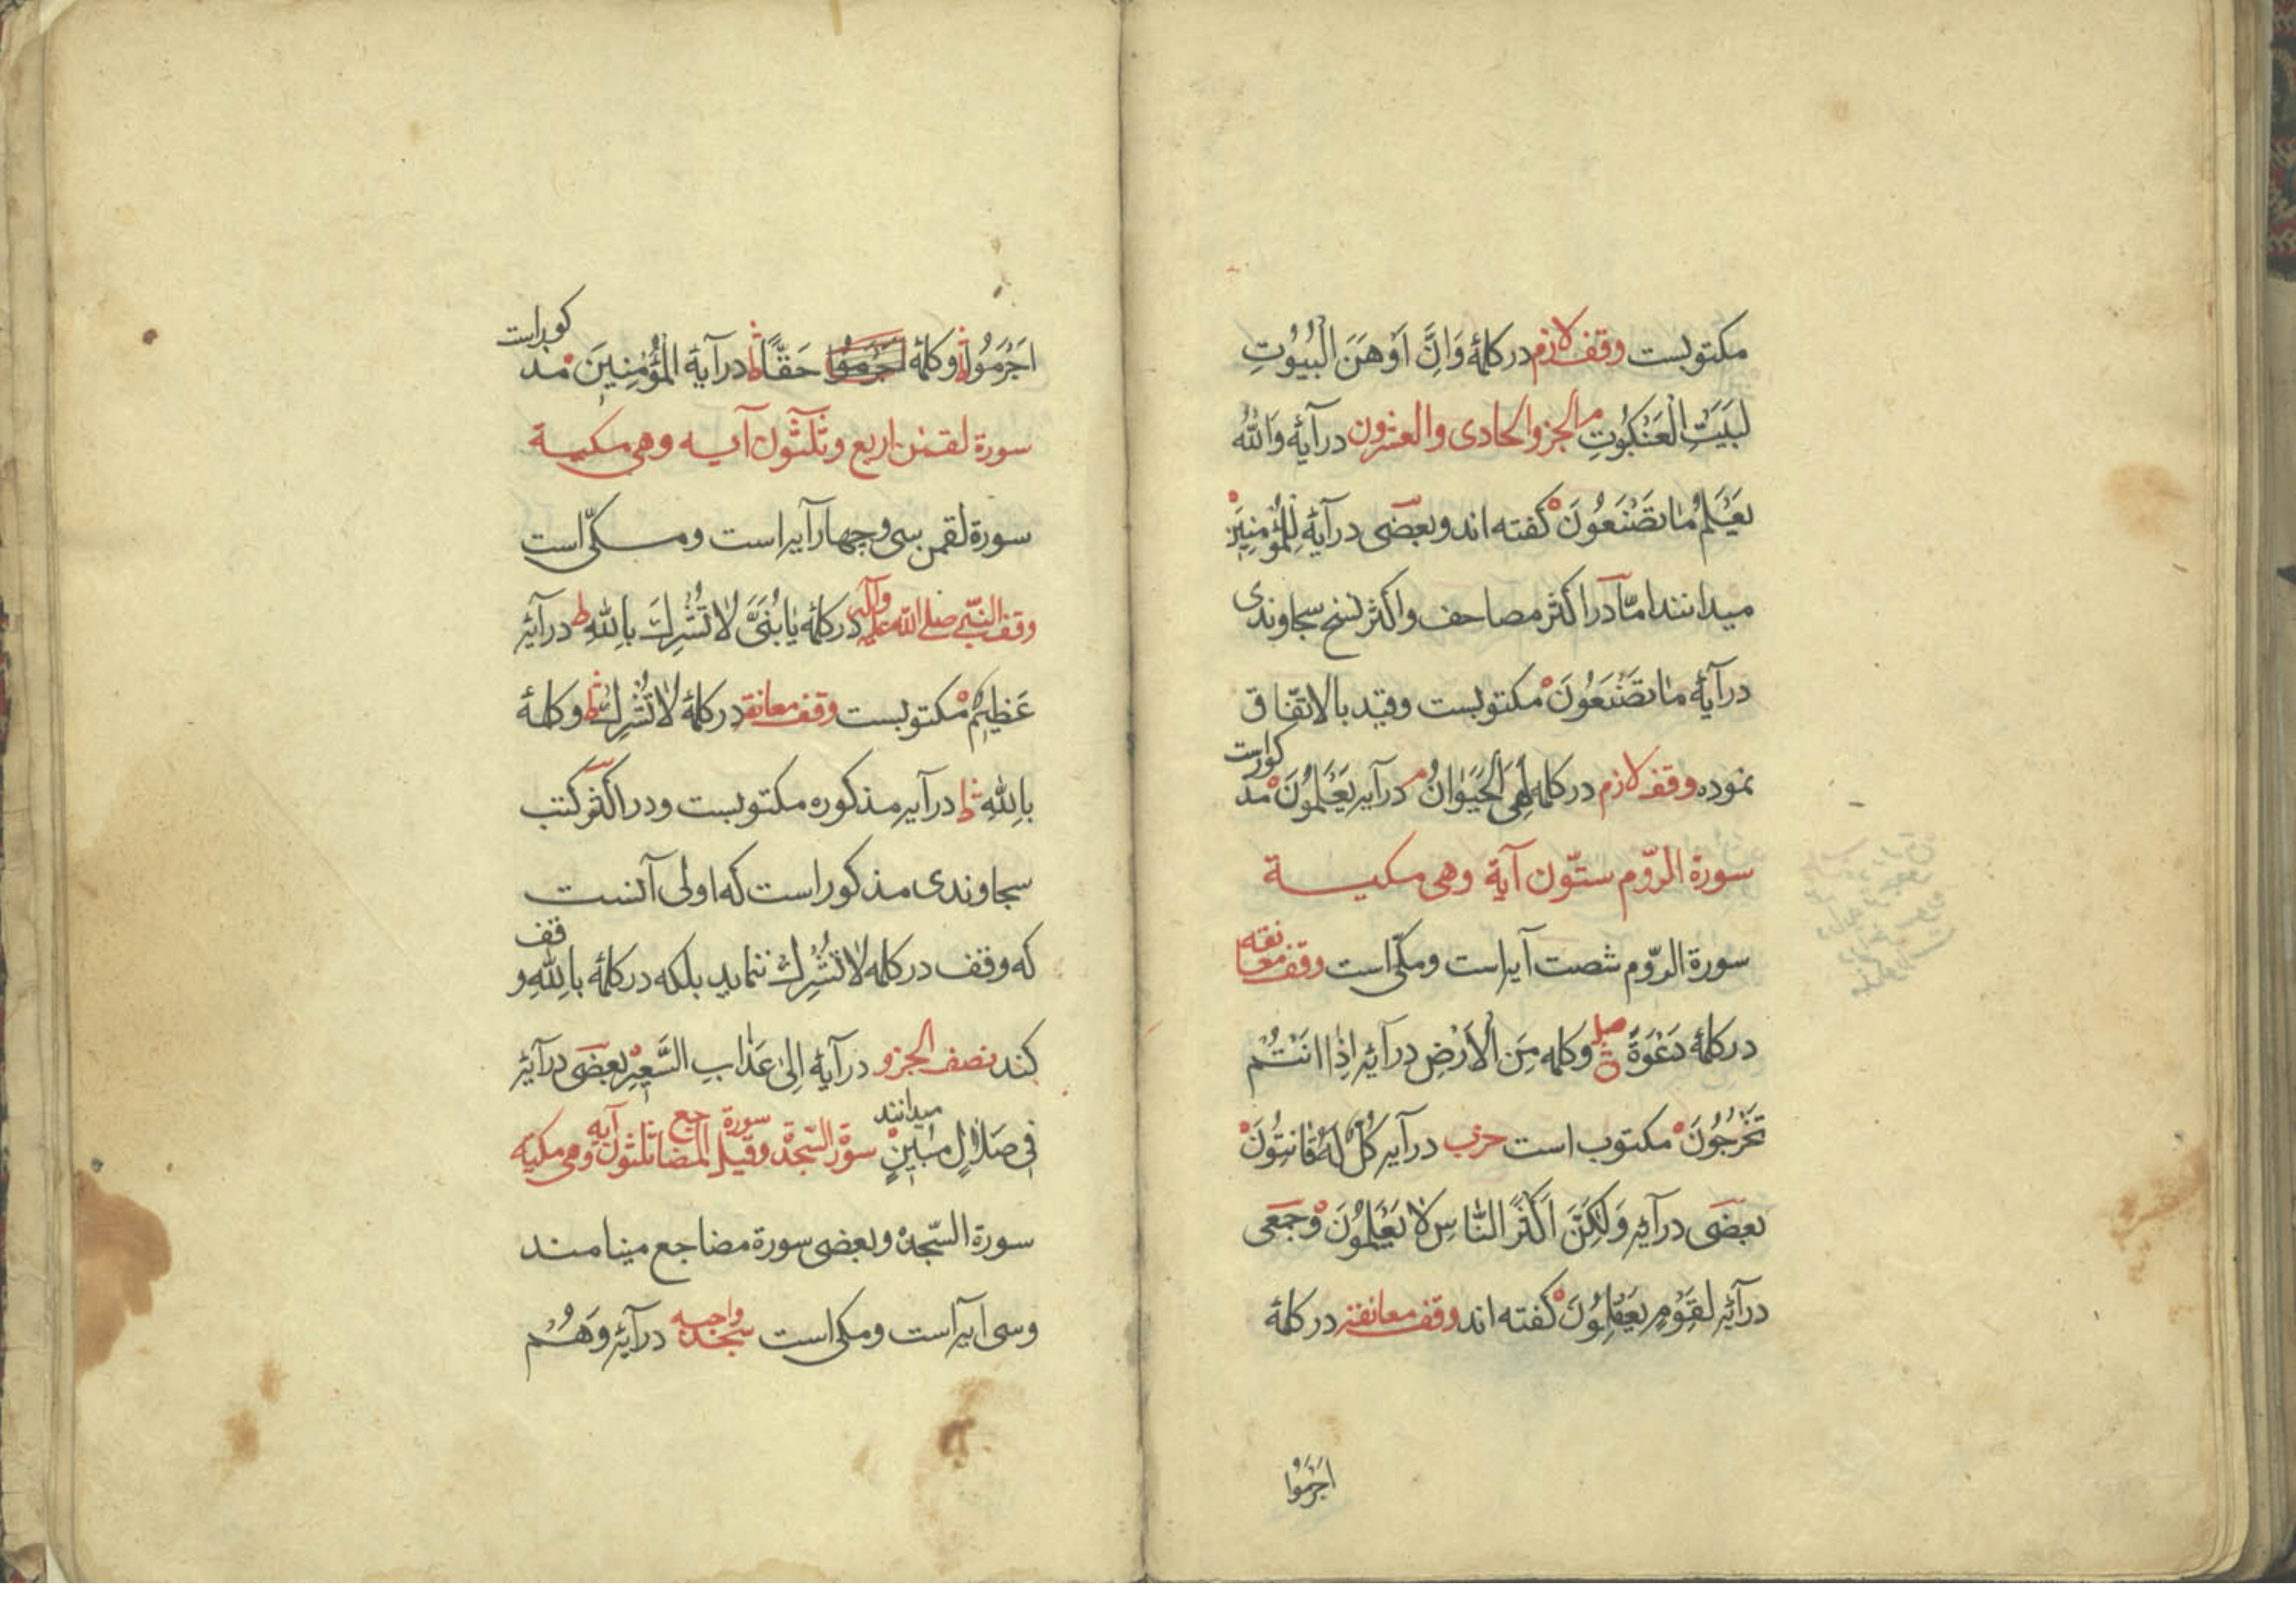 مکتوبست وقف لازم در کلمۀ وَاِنَّ اَوْهَنَ الْبُيُوْتِ
لَبَيْتُ الْعَنْكَبُوْتِ م الجزو الحادی والعشرون در آیۀ وَاللّٰهُ
يَعْلَمُ مَا تَصْنَعُوْنَ گفته اند و بعضی در آیۀ لِلْمُؤْمِنِيْنَ
میدانند امّا در اکثر مصاحف و اکثر نسخ سجاوندی
در آیۀ مَا تَصْنَعُوْنَ مکتوبست و قید بالاتّفاق
نموده وقف لازم در کلمه لَهِیَ الْحَيَوَانُ م در آیه يَعْلَمُوْنَ مذکور است
سورة الرّوم ستّون آیة وهی مکیة
سورة الرّوم شصت آیه است و مکّی است وقف معانقه
در کلمۀ دَعْوَةً صلے ق و کلمه مِنَ الْاَرْضِ در آیه اِذَا اَنْتُمْ
تَخْرُجُوْنَ مکتوب است حزب در آیه كُلٌّ لَهُ قَانِتُوْنَ
بعضی در آیه وَلٰكِنَّ اَكْثَرَ النَّاسِ لَا يَعْلَمُوْنَ و جمعی
در آیه لِقَوْمٍ يَعْقِلُوْنَ گفته اند وقف معانقه در کلمۀ
اَجْرَمُوْا
اَجْرَمُوْا ط و کلمۀ اجرموا حَقًّا ط در آیة الْمُؤْمِنِيْنَ مذکور است
سورة لقمن اربع و ثلثون آیه وهی مکیة
سورة لقمن سی و چهار آیه است و مکّی است
وقف النّبی صلی اللّه علیه وآله در کلمۀ يَا بُنَیَّ لَا تُشْرِكْ بِاللّٰهِ ط در آیه
عَظِيْمٌ مکتوبست وقف معانقه در کلمۀ لَا تُشْرِكْ ط و کلمۀ
بِاللّٰهِ ط در آیه مذکوره مکتوبست و در اکثر کتب
سجاوندی مذکور است که اولی آنست
که وقف در کلمه لَا تُشْرِكْ ننماید بلکه در کلمۀ بِاللّٰهِ وقف
کند نصف الجزو در آیۀ اِلٰى عَذَابِ السَّعِيْرِ بعضی در آیه
فِی ضَلَالٍ مُبِيْنٍ میدانند سورة السّجدة وقیل سورة المضاجع ثلثون آیه وهی مکیّه
سورة السّجدة و بعضی سورة مضاجع مینامند
و سی آیه است و مکی است سجده واجبه در آیه وَهُمْ